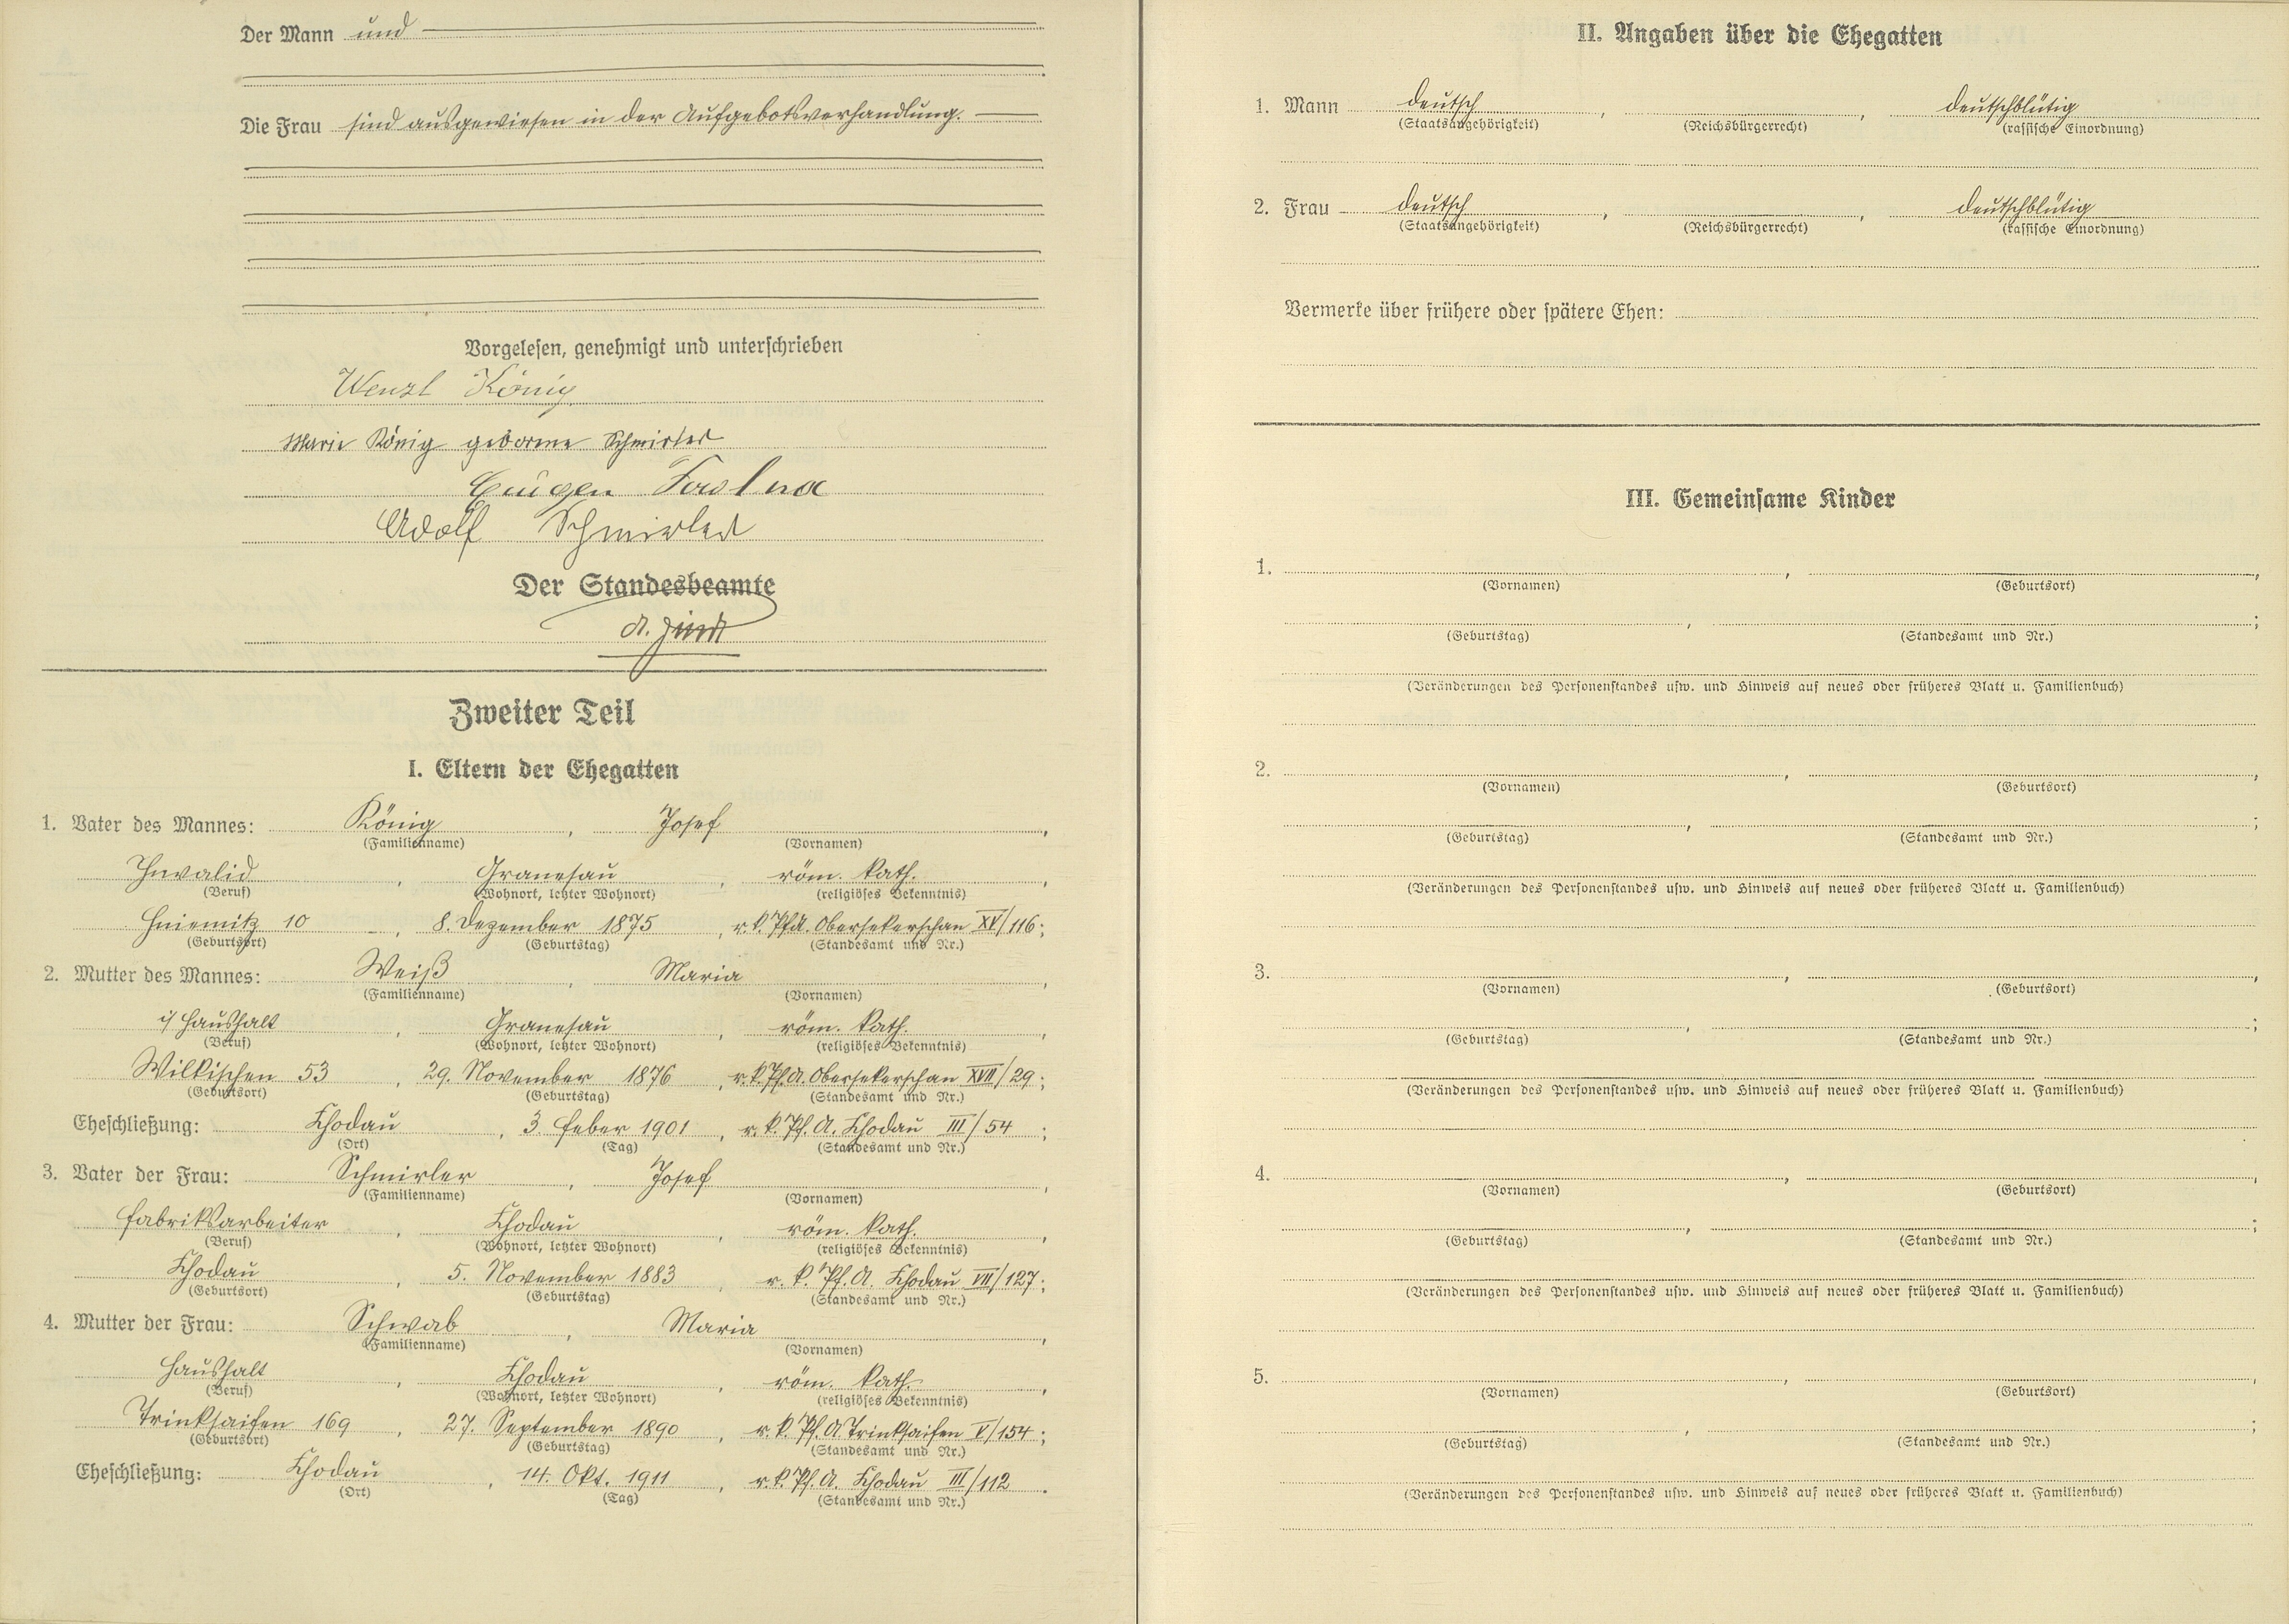 Der Mann und
Die Frau sind ausgewiesen in der Aufgebotsverhandlung.
Vorgelesen, genehmigt und unterschrieben
Wenzl König
Marie König geborene Schmirler
Eugen
Adolf Schmirler
Der Standesbeamte
Zweiter Teil
I. Eltern der Ehegatten
1. Vater des Mannes: König, Josef,
(Familienname) (Vornamen)
Invalid, Granesau, röm. kath.,
(Beruf) (Wohnort, letzter Wohnort) (religiöses Bekenntnis)
Hniemitz 10, 8. Dezember 1875, r. k. Pf. A. Obersekerschan XV/116;
(Geburtsort) (Geburtstag) (Standesamt und Nr.)
2. Mutter des Mannes: Weiß, Maria,
(Familienname) (Vornamen)
i/ Haushalt, Granesau, röm. kath.,
(Beruf) (Wohnort, letzter Wohnort) (religiöses Bekenntnis)
Wilkischen 53, 29. November 1876, r. k. Pf. A. Obersekerschan XVII/29;
(Geburtsort) (Geburtstag) (Standesamt und Nr.)
Eheschließung: Chodau, 3. Feber 1901, r. k. Pf. A. Chodau III/54;
(Ort) (Tag) (Standesamt und Nr.)
3. Vater der Frau: Schmirler, Josef,
(Familienname) (Vornamen)
Fabriksarbeiter, Chodau, röm. kath.,
(Beruf) (Wohnort, letzter Wohnort) (religiöses Bekenntnis)
Chodau, 5. November 1883, r. k. Pf. A. Chodau VII/127;
(Geburtsort) (Geburtstag) (Standesamt und Nr.)
4. Mutter der Frau: Schwab, Maria,
(Familienname) (Vornamen)
Haushalt, Chodau, röm. kath.,
(Beruf) (Wohnort, letzter Wohnort) (religiöses Bekenntnis)
Trinksaifen 169, 27. September 1890, r. k. Pf. A. Trinksaifen V/154;
(Geburtsort) (Geburtstag) (Standesamt und Nr.)
Eheschließung: Chodau, 14. Okt. 1911, r. k. Pf. A. Chodau III/112.
(Ort) (Tag) (Standesamt und Nr.)
II. Angaben über die Ehegatten
1. Mann deutsch, , deutschblütig
(Staatsangehörigkeit) (Reichsbürgerrecht) (rassische Einordnung)
2. Frau deutsch, , deutschblütig
(Staatsangehörigkeit) (Reichsbürgerrecht) (rassische Einordnung)
Vermerke über frühere oder spätere Ehen:
III. Gemeinsame Kinder
1. , ,
(Vornamen) (Geburtsort)
, ;
(Geburtstag) (Standesamt und Nr.)
(Veränderungen des Personenstandes usw. und Hinweis auf neues oder früheres Blatt u. Familienbuch)
2. , ,
(Vornamen) (Geburtsort)
, ;
(Geburtstag) (Standesamt und Nr.)
(Veränderungen des Personenstandes usw. und Hinweis auf neues oder früheres Blatt u. Familienbuch)
3. , ,
(Vornamen) (Geburtsort)
, ;
(Geburtstag) (Standesamt und Nr.)
(Veränderungen des Personenstandes usw. und Hinweis auf neues oder früheres Blatt u. Familienbuch)
4. , ,
(Vornamen) (Geburtsort)
, ;
(Geburtstag) (Standesamt und Nr.)
(Veränderungen des Personenstandes usw. und Hinweis auf neues oder früheres Blatt u. Familienbuch)
5. , ,
(Vornamen) (Geburtsort)
, ;
(Geburtstag) (Standesamt und Nr.)
(Veränderungen des Personenstandes usw. und Hinweis auf neues oder früheres Blatt u. Familienbuch)